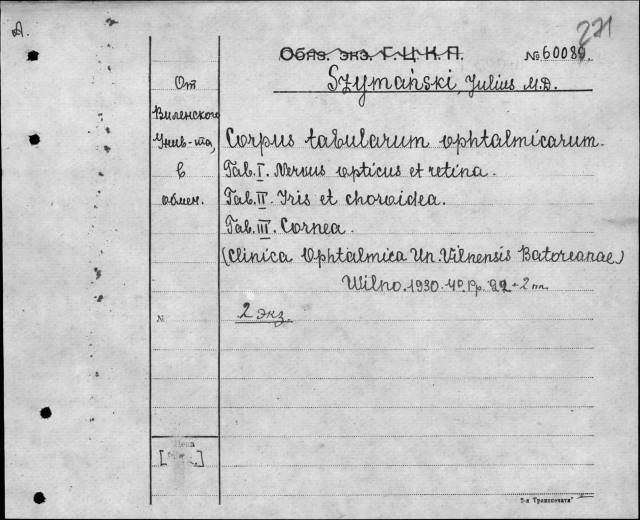 А.
271
Обяз. экз. Г.Ц.К.П.
№ 60089.
Szymański, Julius M.D.
От
Виленского
Унив-та,
в
обмен.
Corpus tabularum ophtalmicarum.
Tab. I. Nervus opticus et retina.
Tab. II. Iris et choroidea.
Tab. III. Cornea.
(Clinica Ophtalmica Un. Vilnensis Batoreanae)
Wilno. 1930. 4º. Pp.
№
2 экз.
Цена
7-я Транспечати